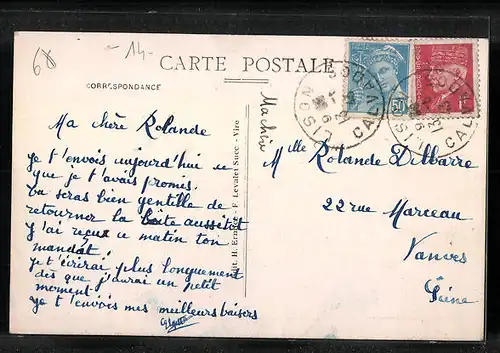 60
- 14 -
CARTE POSTALE
CORRESPONDANCE
Ma chère Rolande
je t'envois aujourd'hui ce
que je t'avais promis.
tu seras bien gentille de
retourner la boîte aussitôt
J'ai reçu ce matin ton
mandat.
je t'écrirai plus longuement
dès que j'aurai un petit
moment.
je t'envois mes meilleurs baisers
Edit. H. Ermice - F. Levalet Succ - Vire
Mlle Rolande Delbarre
22 rue Marceau
Vanves
Seine